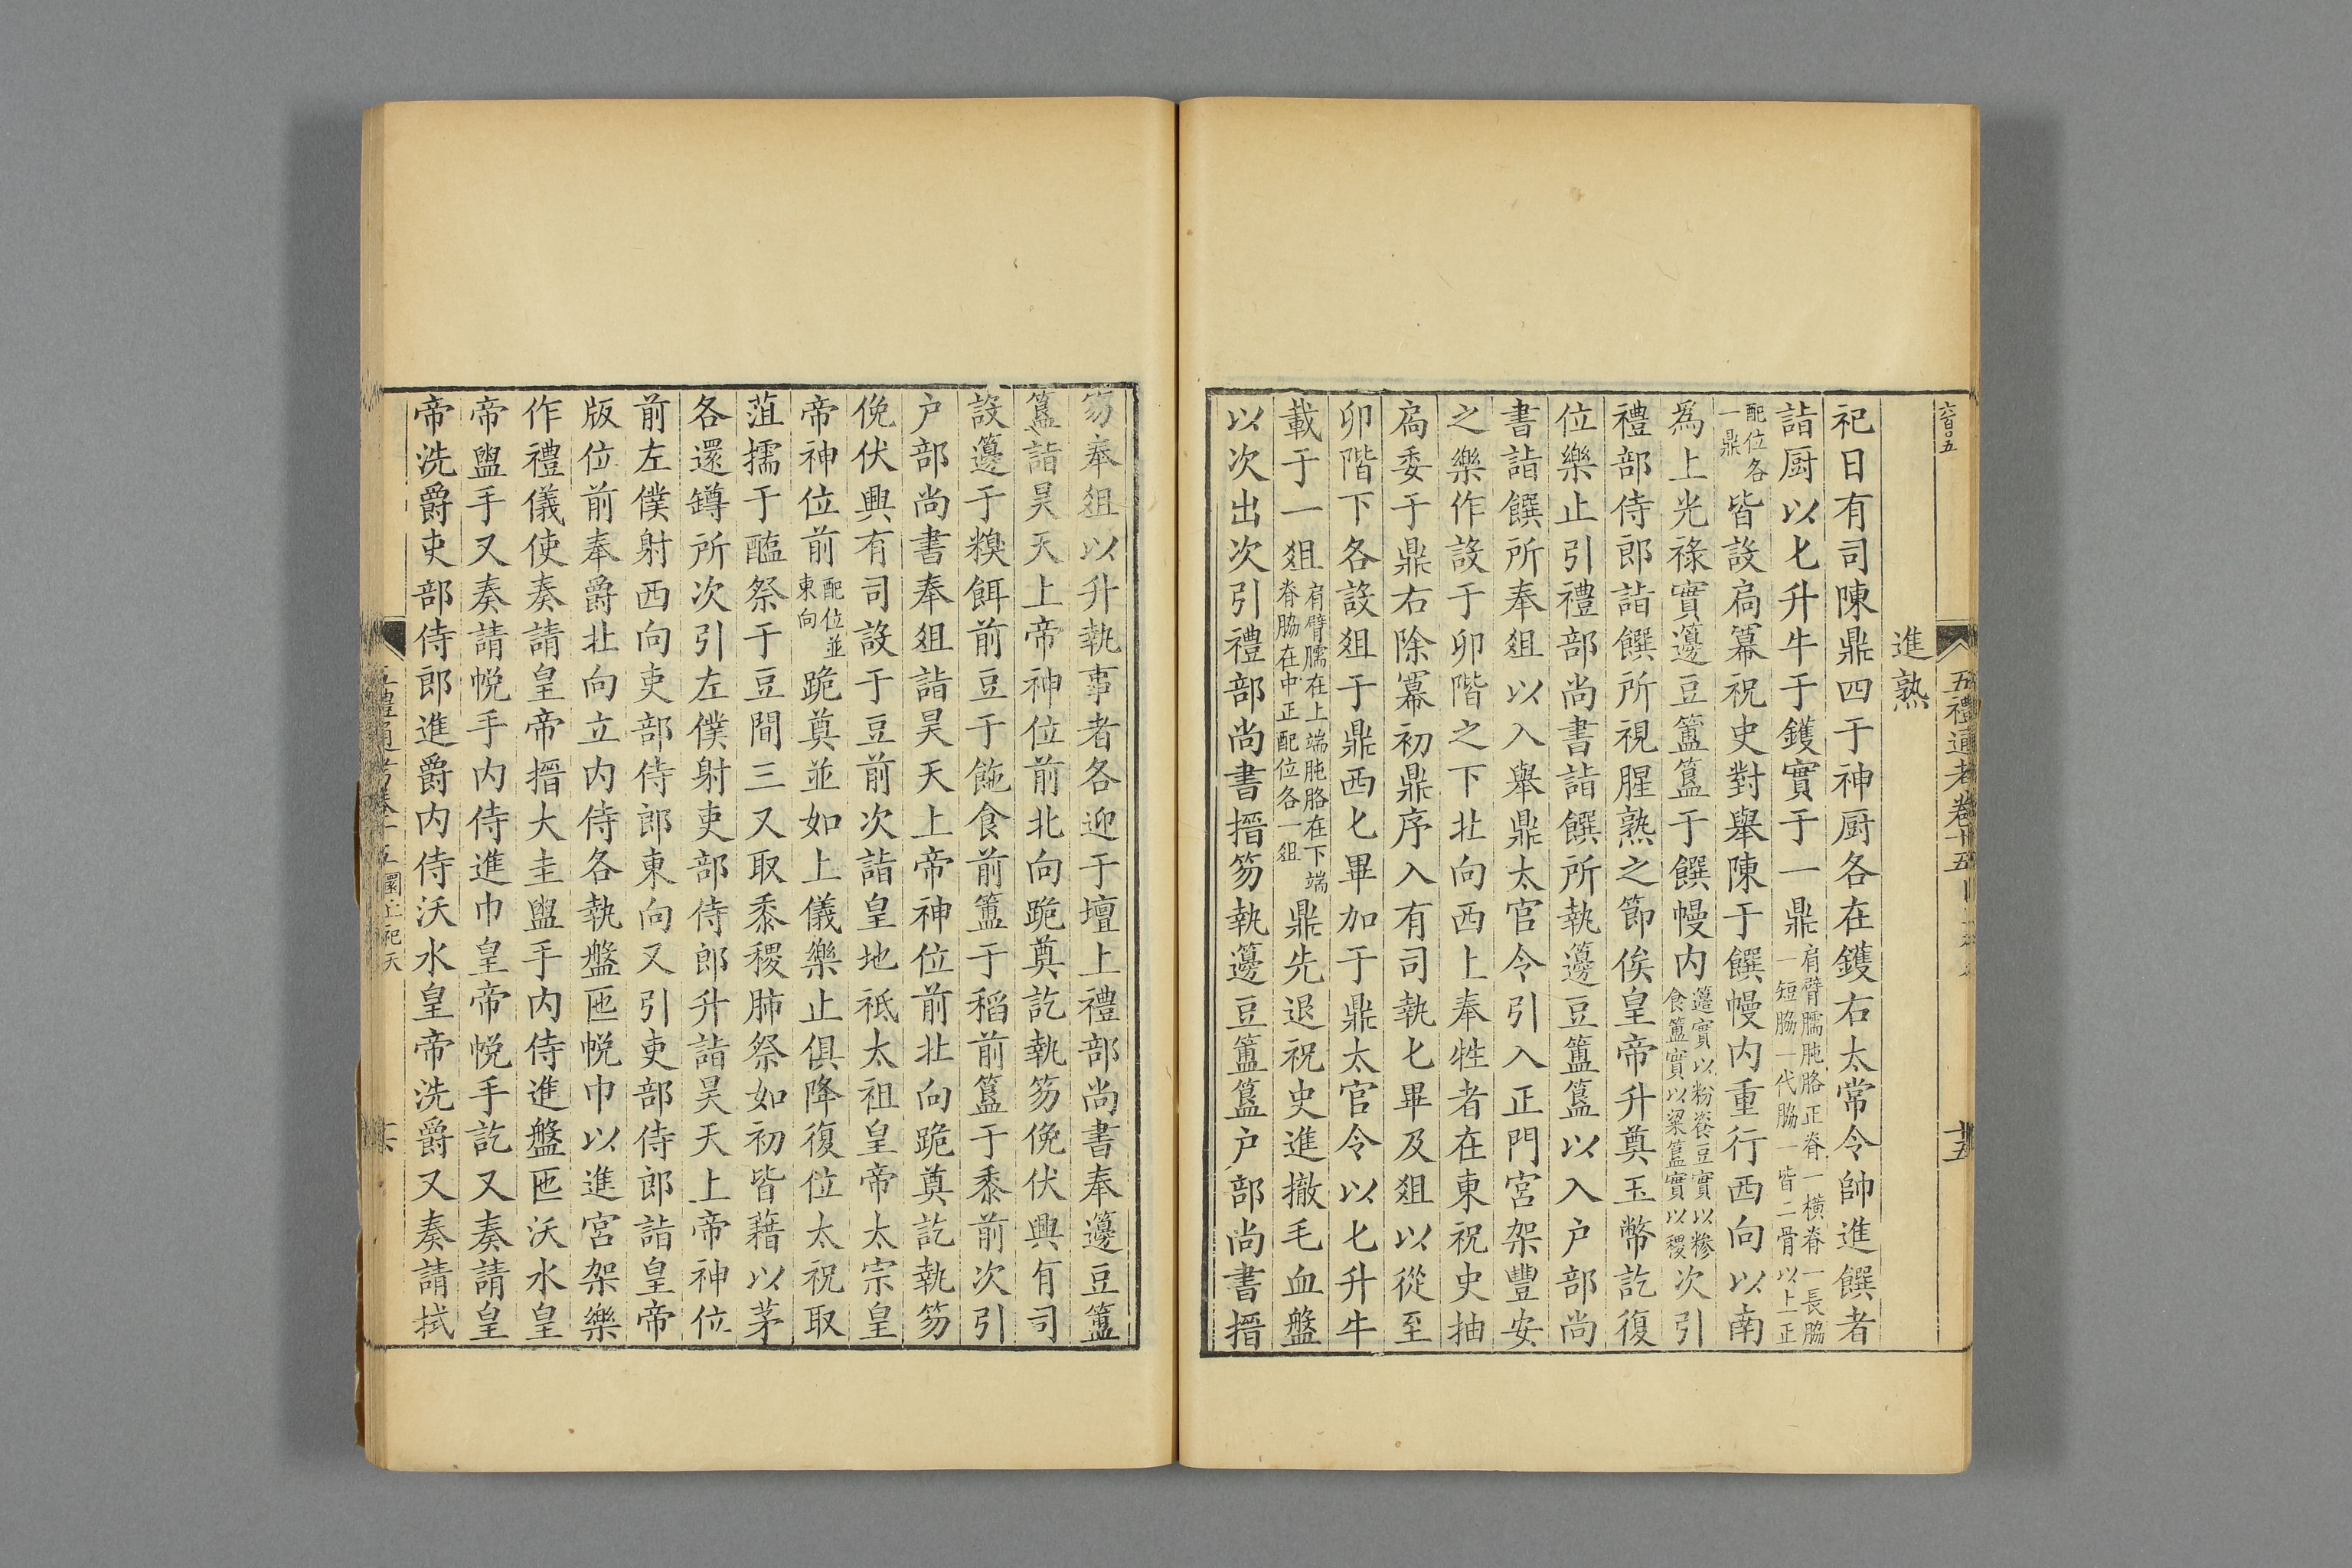 五禮通考卷十五
十五
進熟
祀日有司陳鼎四于神厨各在鑊右太常令帥進饌者
詣厨以匕升牛于鑊實于一鼎肩臂臑肫胳正脊一橫脊一長脇一短脇一代脇一皆二骨以上正
配位各一鼎皆設扃冪祝史對舉陳于饌幔内重行西向以南
爲上光祿實籩豆簠簋于饌幔内籩實以粉餈豆實以糝食簠實以粱簋實以稷次引
禮部侍郎詣饌所視腥熟之節俟皇帝升奠玉幣訖復
位樂止引禮部尚書詣饌所執籩豆簠簋以入户部尚
書詣饌所奉俎以入舉鼎太官令引入正門宮架豐安
之樂作設于卯階之下北向西上奉牲者在東祝史抽
扃委于鼎右除冪初鼎序入有司執匕畢及俎以從至
卯階下各設俎于鼎西匕畢加于鼎太官令以匕升牛
載于一俎肩臂臑在上端肫胳在下端脊脇在中正配位各一俎鼎先退祝史進撤毛血盤
以次出次引禮部尚書搢笏執籩豆簠簋户部尚書搢
笏奉俎以升執事者各迎于壇上禮部尚書奉籩豆簠
簋詣昊天上帝神位前北向跪奠訖執笏俛伏興有司
設籩于糗餌前豆于飽食前簠于稻前簋于黍前次引
户部尚書奉俎詣昊天上帝神位前北向跪奠訖執笏
俛伏興有司設于豆前次詣皇地祇太祖皇帝太宗皇
帝神位前配位並東向跪奠並如上儀樂止俱降復位太祝取
菹擩于醢祭于豆間三又取黍稷肺祭如初皆藉以茅
各還罇所次引左僕射吏部侍郎升詣昊天上帝神位
前左僕射西向吏部侍郎東向又引吏部侍郎詣皇帝
版位前奉爵北向立内侍各執盤匜帨巾以進宮架樂
作禮儀使奏請皇帝搢大圭盥手内侍進盤匜沃水皇
帝盥手又奏請帨手内侍進巾皇帝帨手訖又奏請皇
帝洗爵吏部侍郎進爵内侍沃水皇帝洗爵又奏請拭